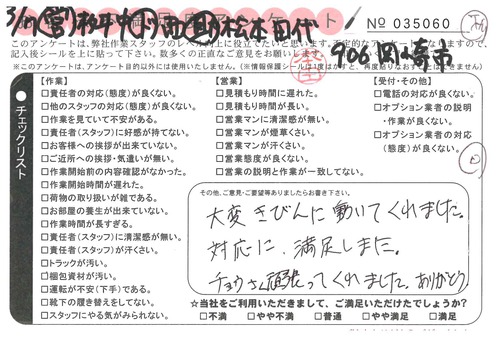 3/7 (営) 和平中 松本 田代
ケート
№ 035060
このアンケートは、弊社作業スタッフのレベル向上に役立てたいと思います。否定的なアンケートになりますので、
記入後シールを上に貼って下さい。数多くの正直なご意見宜しくお願い致します。
※このアンケートは、アンケート目的以外には使用いたしません。(※情報保護シールは1度はがすと、再度貼りなおすことはできません)
906 岡崎市
チェックリスト
【作業】
□責任者の対応(態度)が良くない。
□他のスタッフの対応(態度)が良くない。
□作業を見ていて不安がある。
□責任者(スタッフ)に好感が持てない。
□お客様への挨拶が出来ていない。
□ご近所への挨拶・気遣いが無い。
□作業開始前の内容確認がなかった。
□作業開始時間が遅れた。
□荷物の取り扱いが雑である。
□お部屋の養生が出来ていない。
□作業時間が長すぎる。
□責任者(スタッフ)に清潔感が無い。
□責任者(スタッフ)が汗くさい。
□トラックが汚い。
□梱包資材が汚い。
□運転が不安(下手)である。
□靴下の履き替えをしてない。
□スタッフにやる気がみられない。
【営業】
□見積もり時間に遅れた。
□見積もり時間が長い。
□営業マンに清潔感が無い。
□営業マンが煙草くさい。
□営業マンが汗くさい。
□営業態度が良くない。
□営業の説明と作業が一致してない。
【受付・その他】
□電話の対応が良くない。
□オプション業者の説明
・作業が良くない。
□オプション業者の対応
(態度)が良くない。
その他、ご意見・ご要望等ありましたらお書き下さい。
大変きびんに動いてくれました。
対応に、満足しました。
チョウさん頑張ってくれました。ありがとう
☆当社をご利用いただきまして、ご満足いただけたでしょうか?
□不満 □やや不満 □普通 □やや満足 □満足